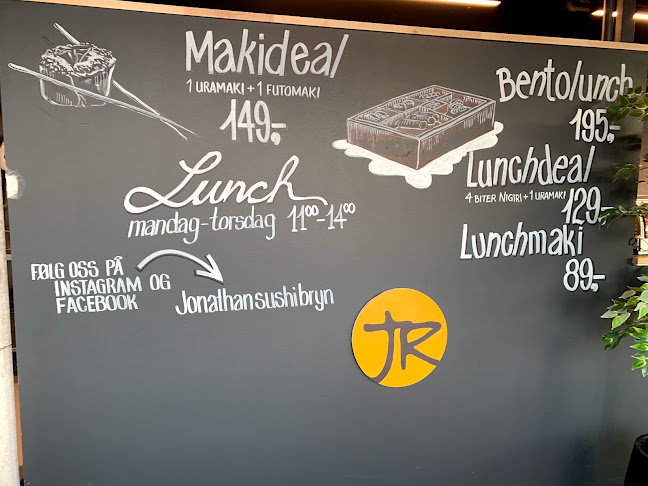 Makideal
1 URAMAKI + 1 FUTOMAKI
149,-
Bentolunch
195,-
Lunchdeal
4 BITER NIGIRI + 1 URAMAKI
129,-
Lunchmaki
89,-
Lunch
mandag-torsdag 11⁰⁰-14⁰⁰
FØLG OSS PÅ
INSTAGRAM OG
FACEBOOK
Jonathansushibryn
JR